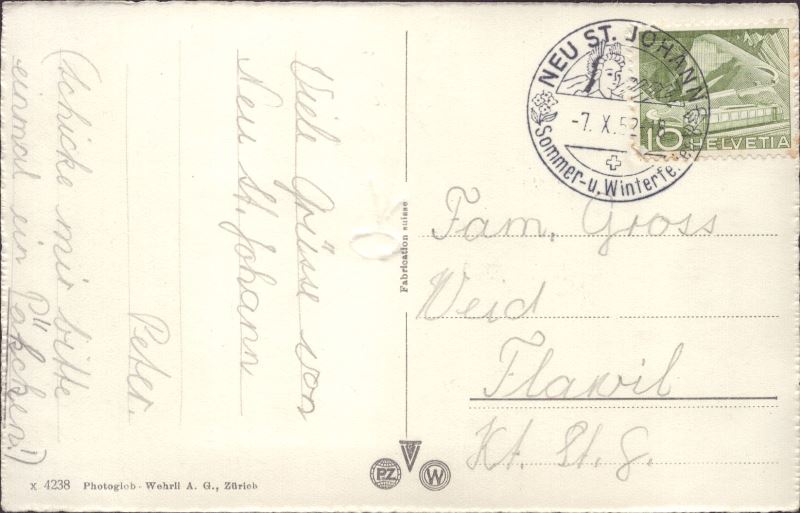 Viele Grüsse von
Neu St. Johann
Peter.
(schicke mir bitte
einmal ein Päkchen!)
Fabrication suisse
NEU ST. JOHANN
-7. X. 52
Sommer- u. Winterfe
10 HELVETIA
Fam. Gross
Weid
Flawil
Kt. St. G.
PZ
W
X 4238 Photoglob - Wehrli A. G., Zürich